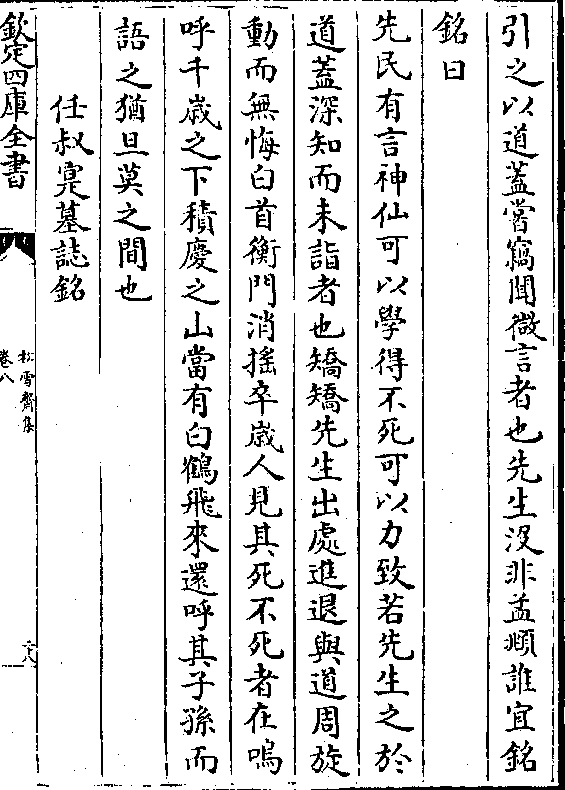 引之以道蓋嘗竊聞微言者也先生没非孟頫誰宜銘
銘曰
先民有言神仙可以學得不死可以力致若先生之於
道蓋深知而未詣者也矯矯先生出處進退與道周旋
動而無悔白首衡門消揺卒歲人見其死不死者在嗚
呼千歲之下積慶之山當有白鶴飛來還呼其子孫而
語之猶旦莫之間也
任叔寔墓誌銘
欽定四庫全書
松雪齋集
卷八